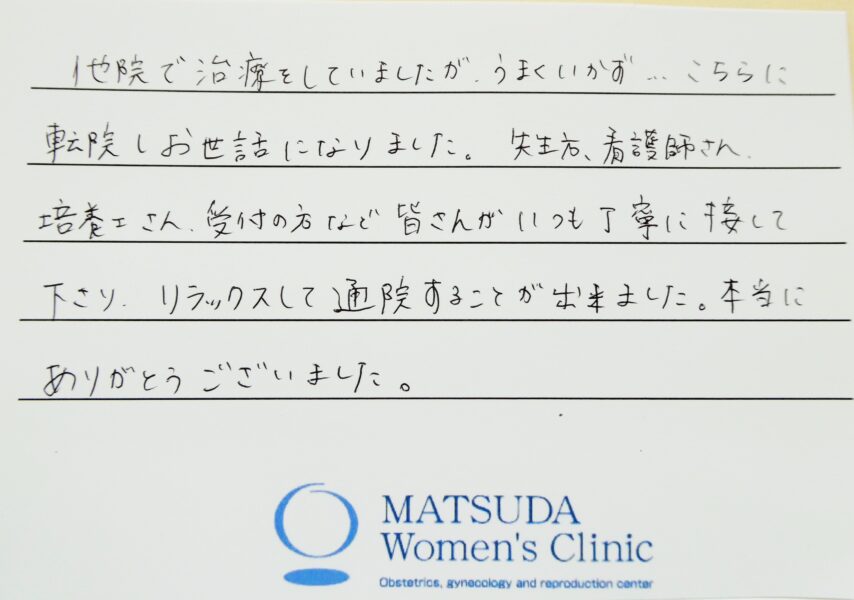 他院で治療をしていましたが、うまくいかず… こちらに
転院しお世話になりました。 先生方、看護師さん、
培養士さん、受付の方など 皆さんが いつも 丁寧に 接して
下さり、 リラックスして 通院することが 出来ました。本当に
ありがとう ございました。
MATSUDA
Women's Clinic
Obstetrics, gynecology and reproduction center